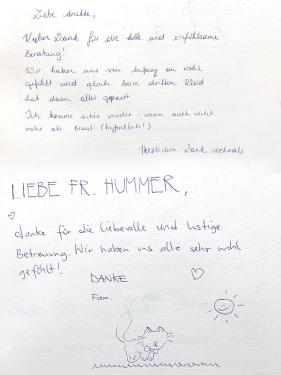 Liebe
Vielen Dank für die tolle und einfühlsame
Beratung!
Wir haben uns von Anfang an wohl
gefühlt und gleich beim dritten Kleid
hat dann alles gepasst
Ich komme sicher wieder - wenn auch nicht
mehr als Braut (hoffentlich!)
Herzlichen Dank nochmals
LIEBE FR. HUMMER,
danke für die liebevolle und lustige
Betreuung. Wir haben uns alle sehr wohl
gefühlt!
DANKE
Fam.